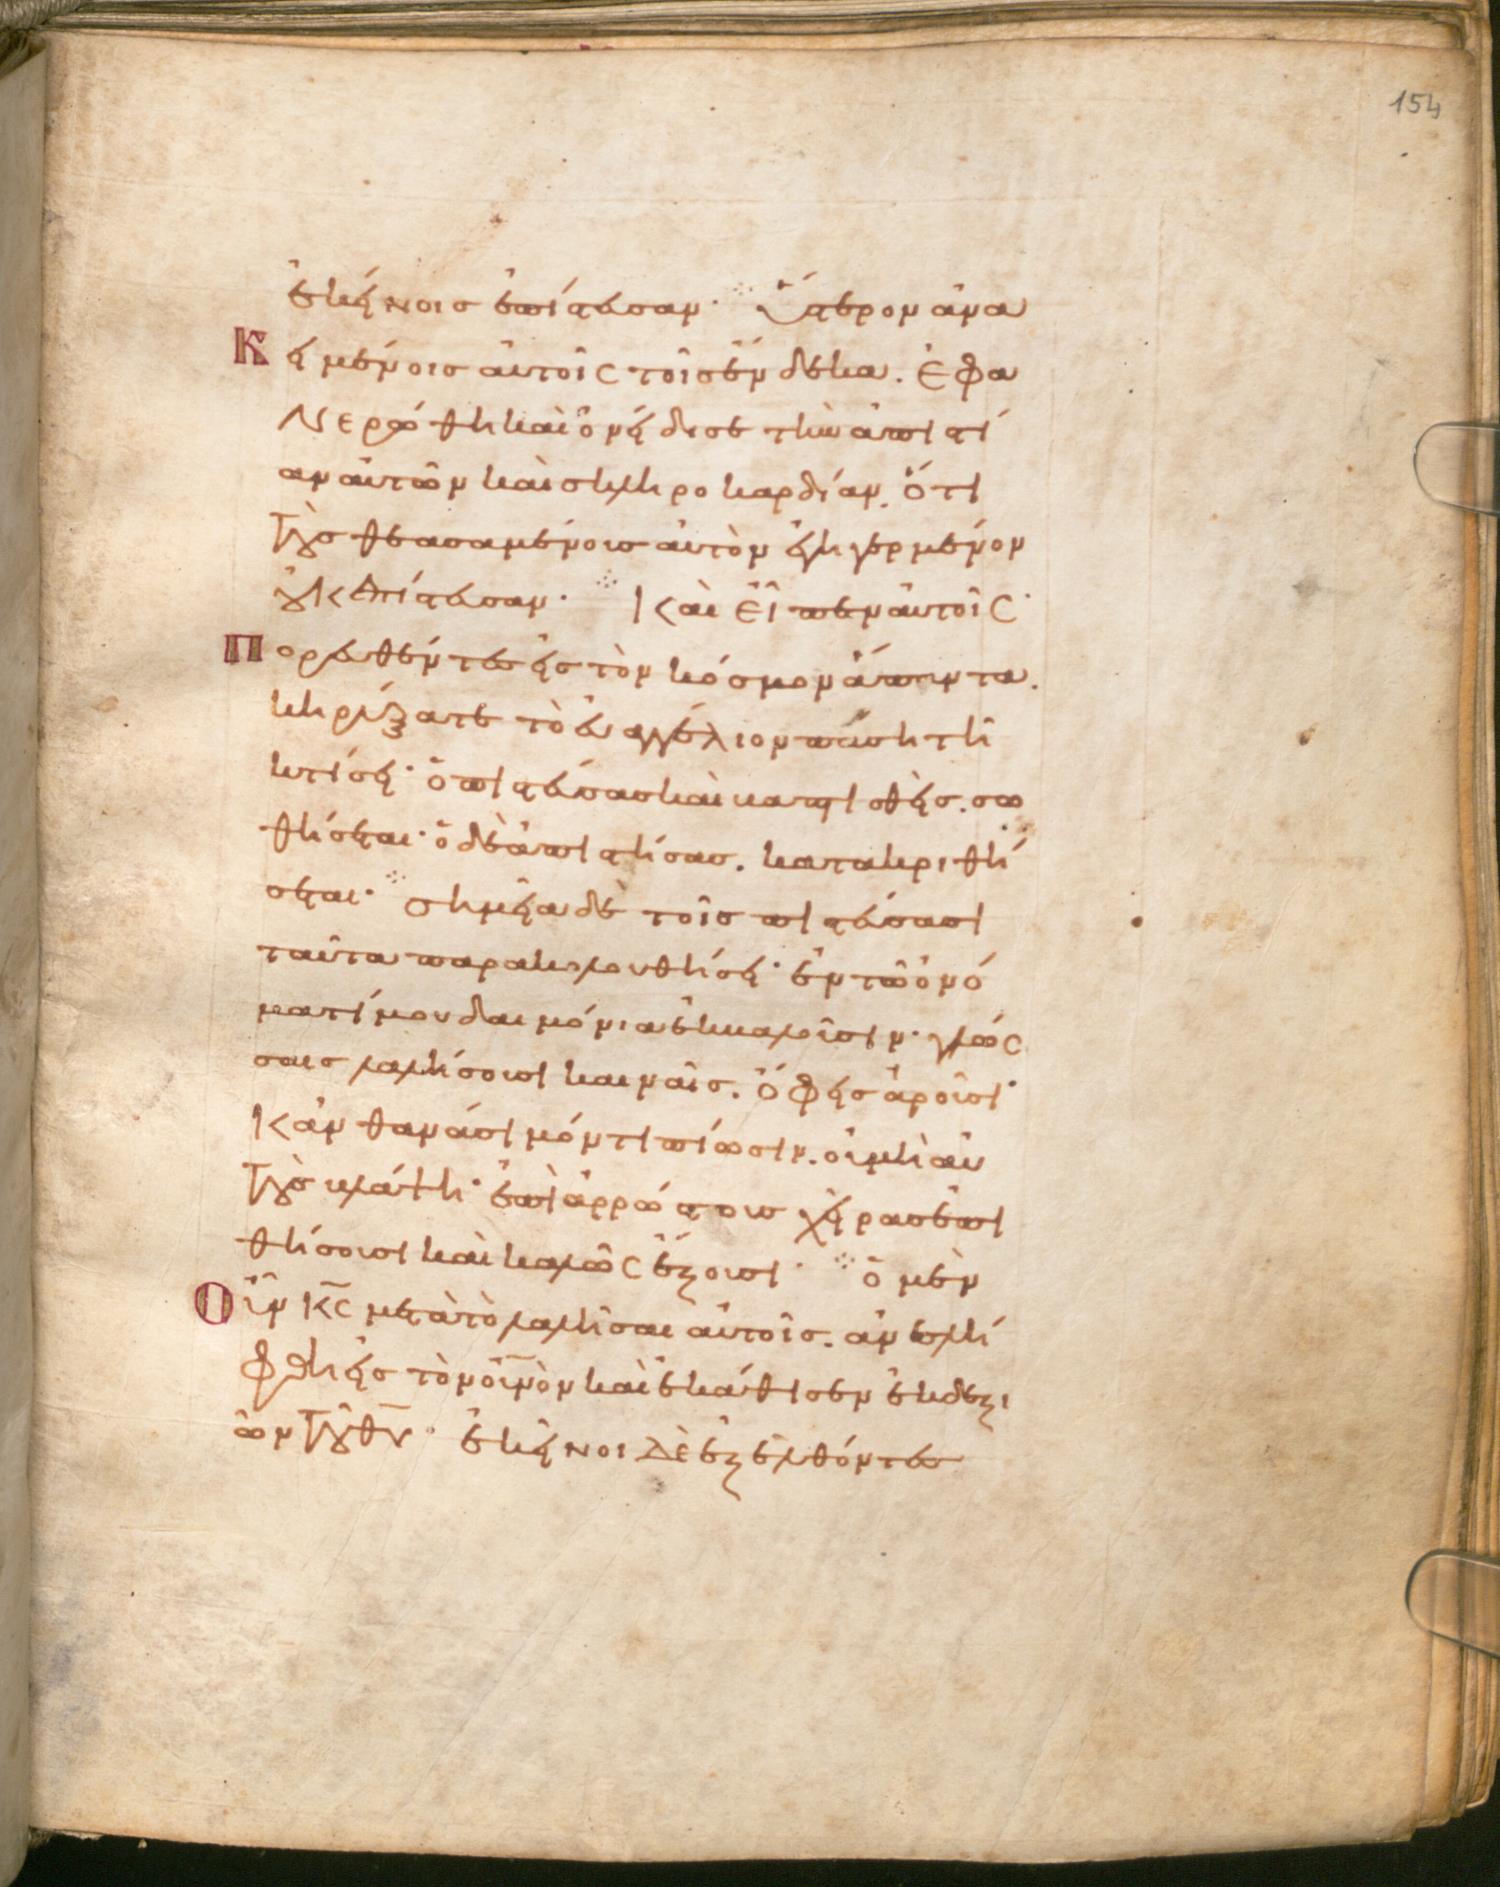 154
ἐκείνοις ἐπίστευσαν· ὕστερον ἀνα
Κείμένοις αὐτοῖς τοῖς ἕνδεκα. ἐφα
νερώθη καὶ ὀνείδισε τὴν ἀπιστί
αν αὐτῶν καὶ σκληροκαρδίαν. ὅτι
τοῖς θεασαμένοις αὐτὸν ἐγηγερμένον
οὐκ ἐπίστευσαν· Καὶ εἶπεν αὐτοῖς·
Πορευθέντες εἰς τὸν κόσμον ἅπαντα.
κηρύξατε τὸ εὐαγγέλιον πάση τῆ
κτίσει· ὁ πιστεύσας καὶ βαπτισθεὶς. σω
θήσεται· ὁ δὲ ἀπιστήσας. κατακριθή
σεται· σημεῖα δὲ τοῖς πιστεύσασι
ταῦτα παρακολουθήσει· ἐν τῶ ὀνό
ματί μου δαιμόνια ἐκβαλοῦσιν· γλώς
σαις λαλήσουσι καιναῖς. ὄφεις ἀροῦσι·
Κἂν θανάσιμόν τι πίωσιν. οὐ μὴ αὐ
τοὺς βλάψη· ἐπὶ ἀρρώστους χεῖρας ἐπι
θήσουσι καὶ καλῶς ἕξουσι· ὁ μὲν
Οὖν κς μετὰ τὸ λαλῆσαι αὐτοῖς. ἀνελή
φθη εἰς τὸν οὐνὸν καὶ ἐκάθισεν ἐκ δεξι
ῶν τοῦ θυ· ἐκεῖνοι δὲ ἐξελθόντες